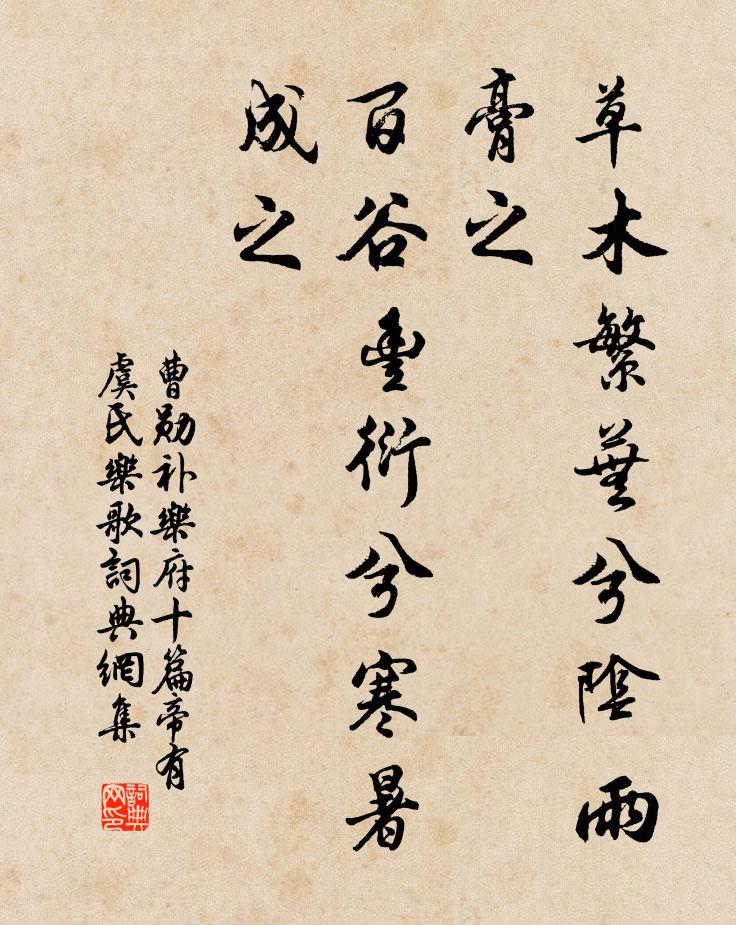 草木繁蕪兮陰雨
膏之
百谷豊衍兮寒暑
成之
曹勛补樂府十篇帝有
虞氏樂歌詞典網集
詞典网印